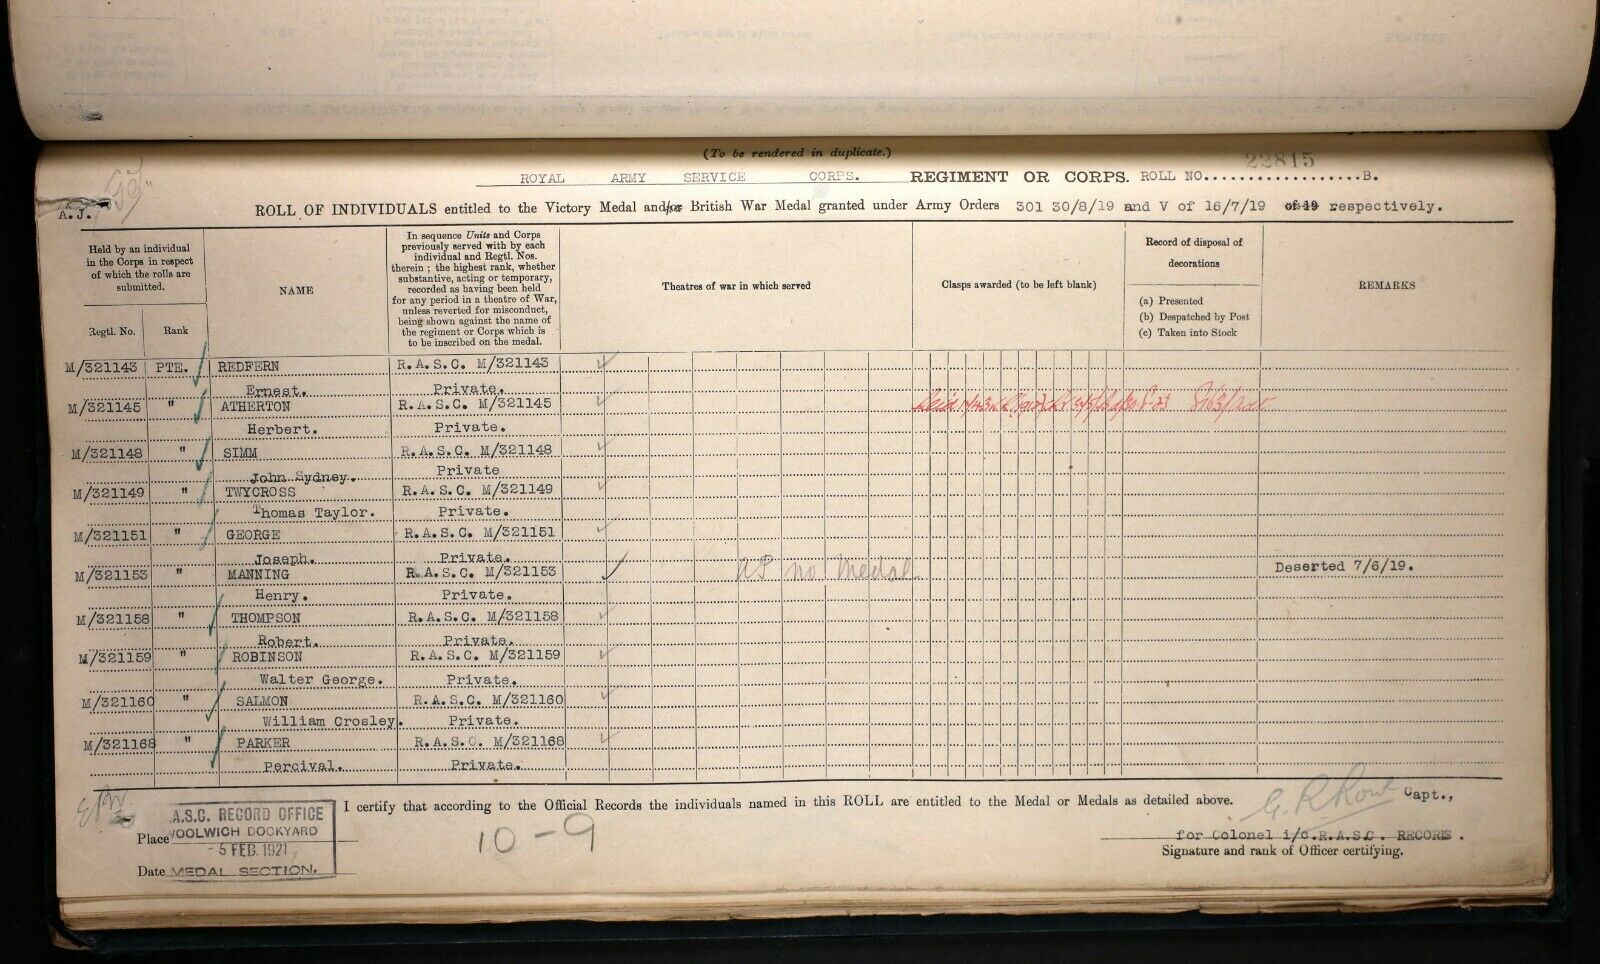 (To be rendered in duplicate.)
22815
ROYAL ARMY SERVICE CORPS. REGIMENT OR CORPS. ROLL NO..................B.
A.J.
ROLL OF INDIVIDUALS entitled to the Victory Medal and/or British War Medal granted under Army Orders 301 30/8/19 and V of 16/7/19 of 19 respectively.
Held by an individual
in the Corps in respect
of which the rolls are
submitted.
Regtl. No.
Rank
NAME
In sequence Units and Corps
previously served with by each
individual and Regtl. Nos.
therein ; the highest rank, whether
substantive, acting or temporary,
recorded as having been held
for any period in a theatre of War,
unless reverted for misconduct,
being shown against the name of
the regiment or Corps which is
to be inscribed on the medal.
Theatres of war in which served
Clasps awarded (to be left blank)
Record of disposal of
decorations
(a) Presented
(b) Despatched by Post
(c) Taken into Stock
REMARKS
M/321143 PTE. REDFERN R.A.S.C. M/321143
Ernest. Private.
M/321145 " ATHERTON R.A.S.C. M/321145
Herbert. Private.
M/321148 " SIMM R.A.S.C. M/321148
John Sydney. Private
M/321149 " TWYCROSS R.A.S.C. M/321149
Thomas Taylor. Private.
M/321151 " GEORGE R.A.S.C. M/321151
Joseph. Private.
M/321153 " MANNING R.A.S.C. M/321153 no Medal Deserted 7/6/19.
Henry. Private.
M/321158 " THOMPSON R.A.S.C. M/321158
Robert. Private.
M/321159 " ROBINSON R.A.S.C. M/321159
Walter George. Private.
M/321160 " SALMON R.A.S.C. M/321160
William Crosley. Private.
M/321168 " PARKER R.A.S.C. M/321168
Percival. Private.
I certify that according to the Official Records the individuals named in this ROLL are entitled to the Medal or Medals as detailed above.
Capt.,
Place
Date
.A.S.C. RECORD OFFICE
WOOLWICH DOCKYARD
- 5 FEB. 1921
MEDAL SECTION.
10-9
for Colonel i/c.R.A.S.C. RECORDS.
Signature and rank of Officer certifying.